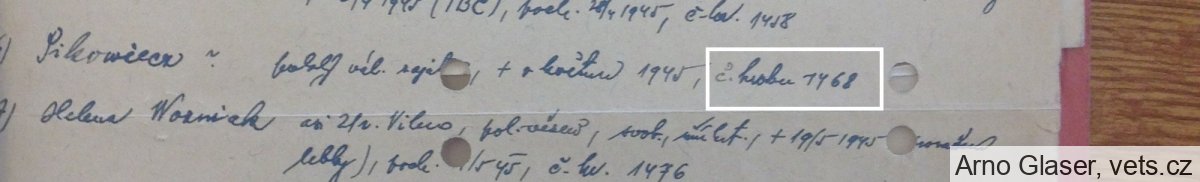 1945 (TBC), poch. 28/4 1945, č. hr. 1458
Sikowiecz ? polský vál. zaj , + v květnu 1945, č. hrobu 1468
Helena Worniak asi 21r. Vilno, pol. vězeň, svob., + 19/5 1945
lebky), poch. /5 45, č. hr. 1476
Arno Glaser, vets.cz